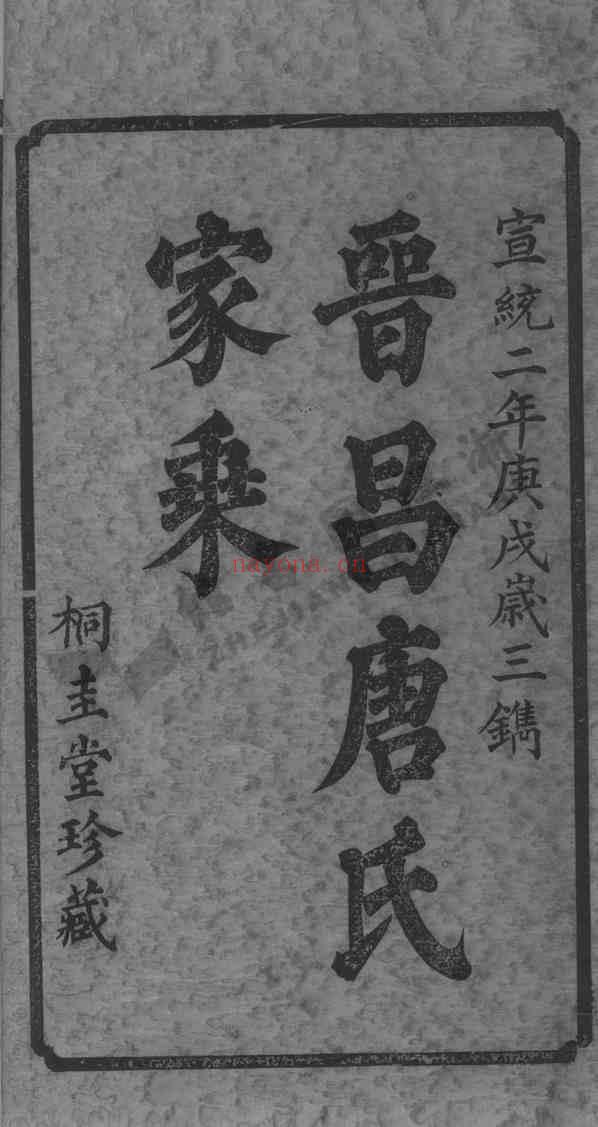 宣統二年庚戌歲三鐫
晉昌唐氏
家乘
桐圭堂珍藏
nayona.cn